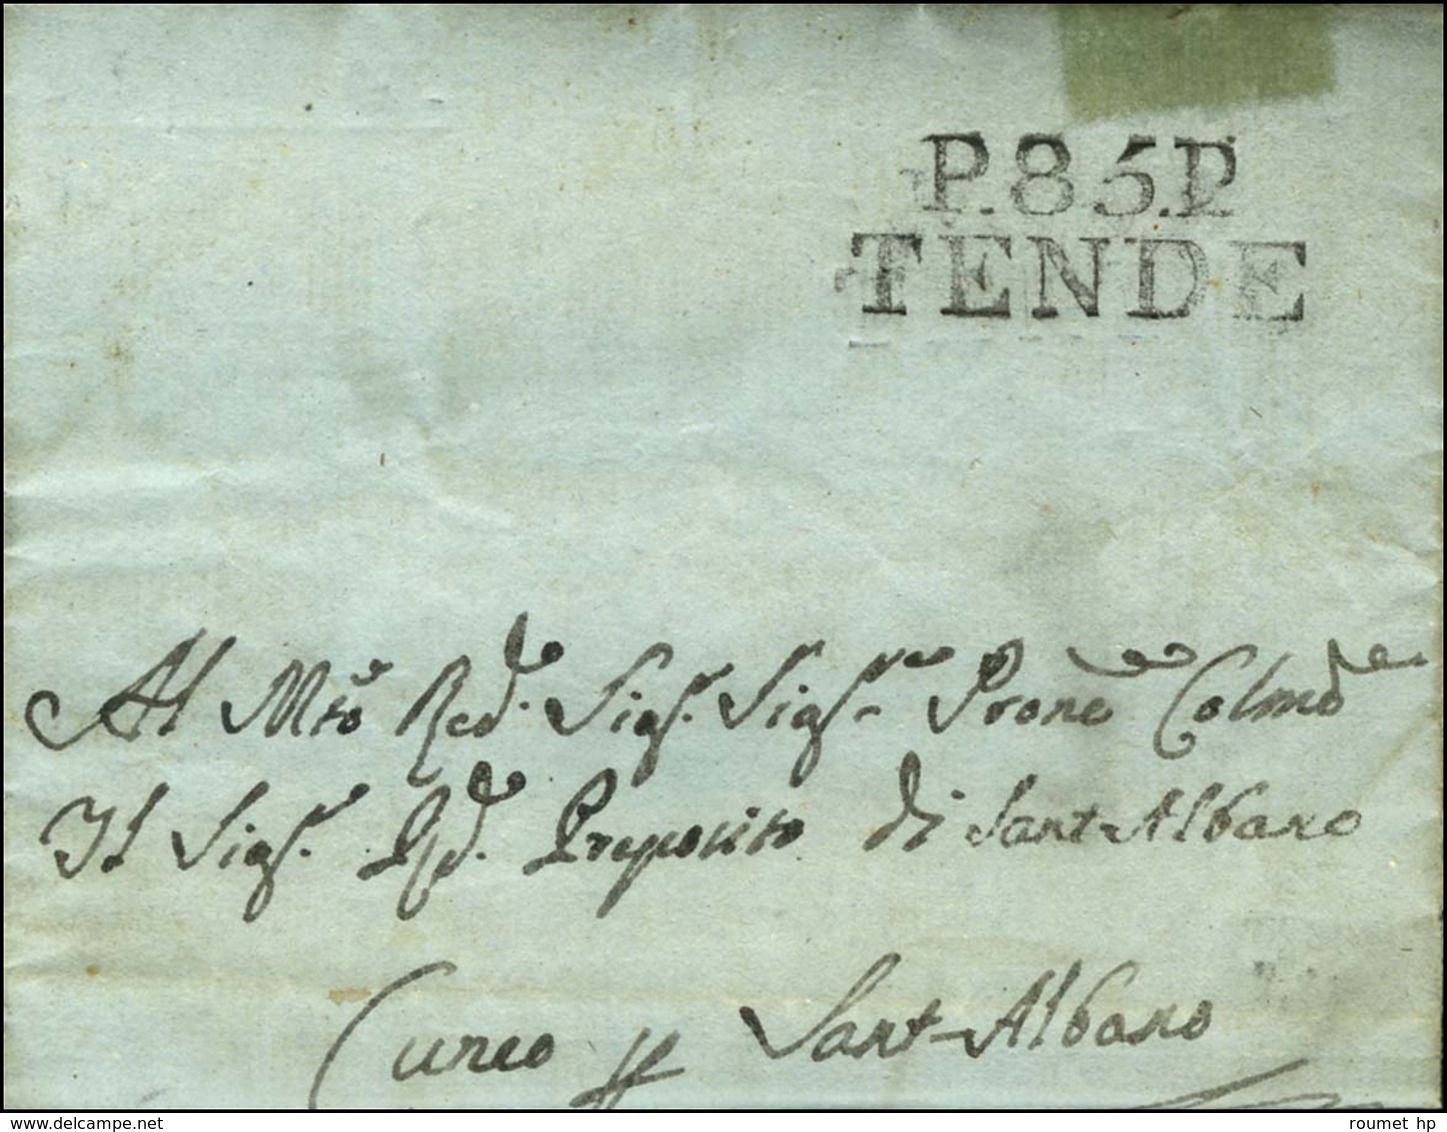 P.85.P
TENDE
Al Mto Red. Sigr. Sigr. Prone Colmo
Il Sigr. Rd. Preposito di Sant-Albano
Cuneo Sant-Albano
delcampe.net
roumet hp